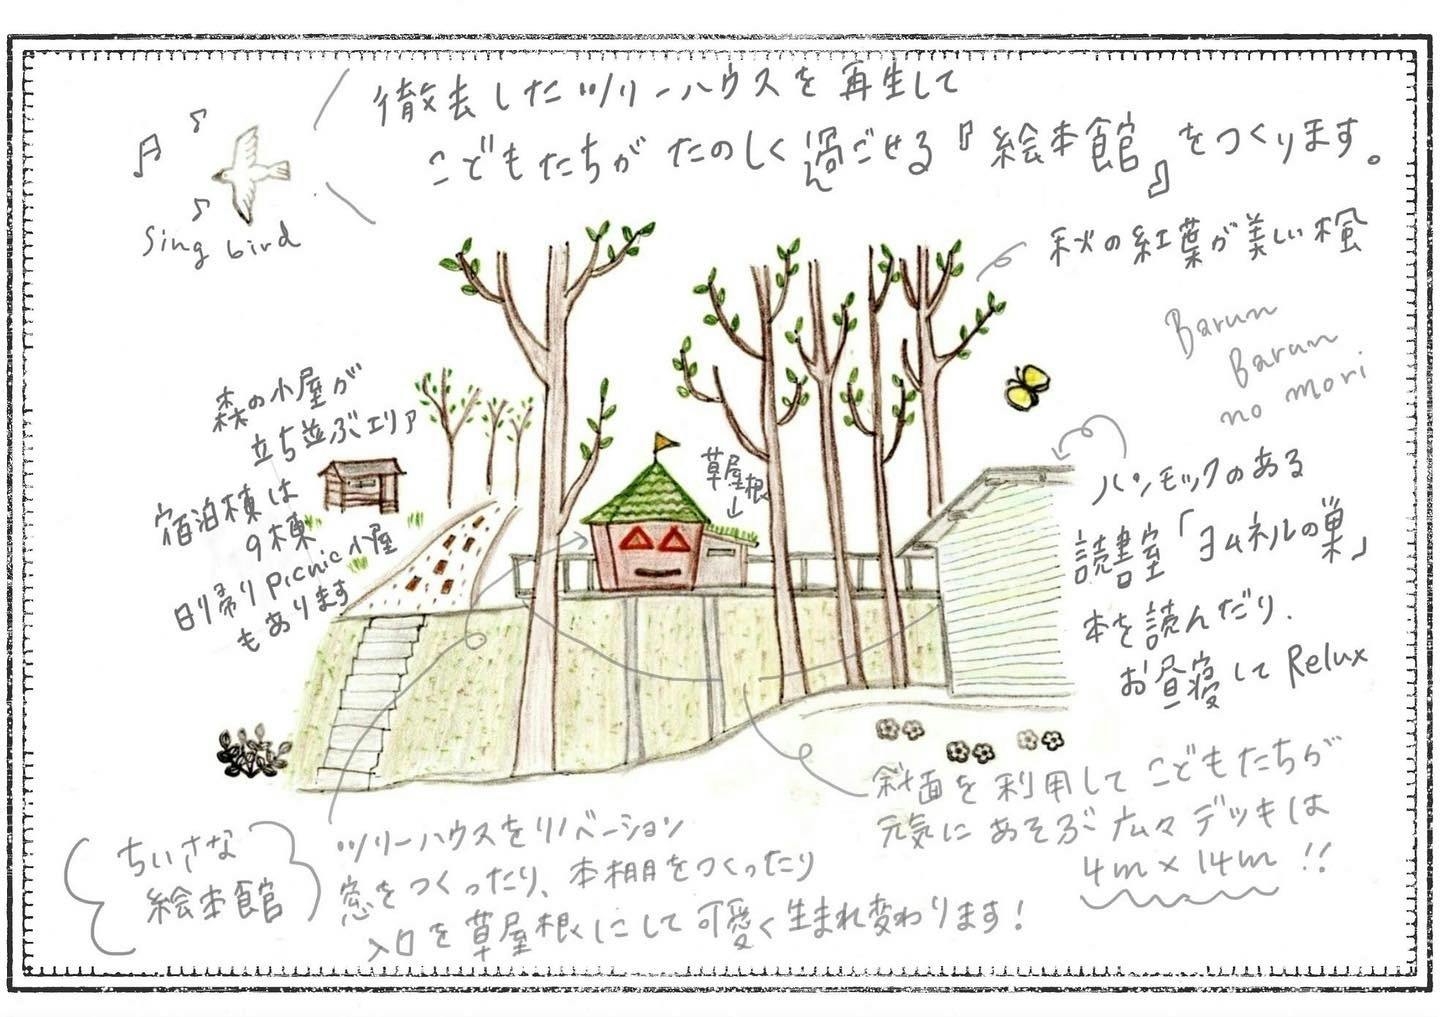 徹去したツリーハウスを再生して
こどもたちがたのしく過ごせる『絵本館』をつくります。
sing bird
秋の紅葉が美しい楓
Barun
Barun
no mori
森の小屋が
立ち並ぶエリア
宿泊棟は
9棟
日帰りpicnic小屋
もあります
草屋根
ハンモックのある
読書室「ヨムネルの巣」
本を読んだり、
お昼寝してRelux
斜面を利用してこどもたちが
元気にあそぶ広々デッキは
4m×14m!!
ちいさな
絵本館
ツリーハウスをリノベーション
窓をつくったり、本棚をつくったり
入口を草屋根にして可愛く生まれ変わります!